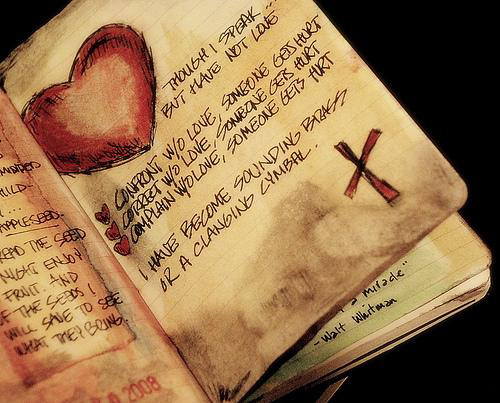 THOUGH I SPEAK...
BUT HAVE NOT LOVE
CONFRONT W/O LOVE, SOMEONE GETS HURT
CORRECT W/O LOVE, SOMEONE GETS HURT
COMPLAIN W/O LOVE, SOMEONE GETS HURT
I HAVE BECOME SOUNDING BRASS
OR A CLANGING CYMBAL.
X
APPLESEED.
THE SEED
NIGHT ENJOY
FRUIT. AND
OF THE SEEDS I
WILL SAVE TO SEE
WHAT THEY BRING.
2008
a miracle"
- Walt Whitman